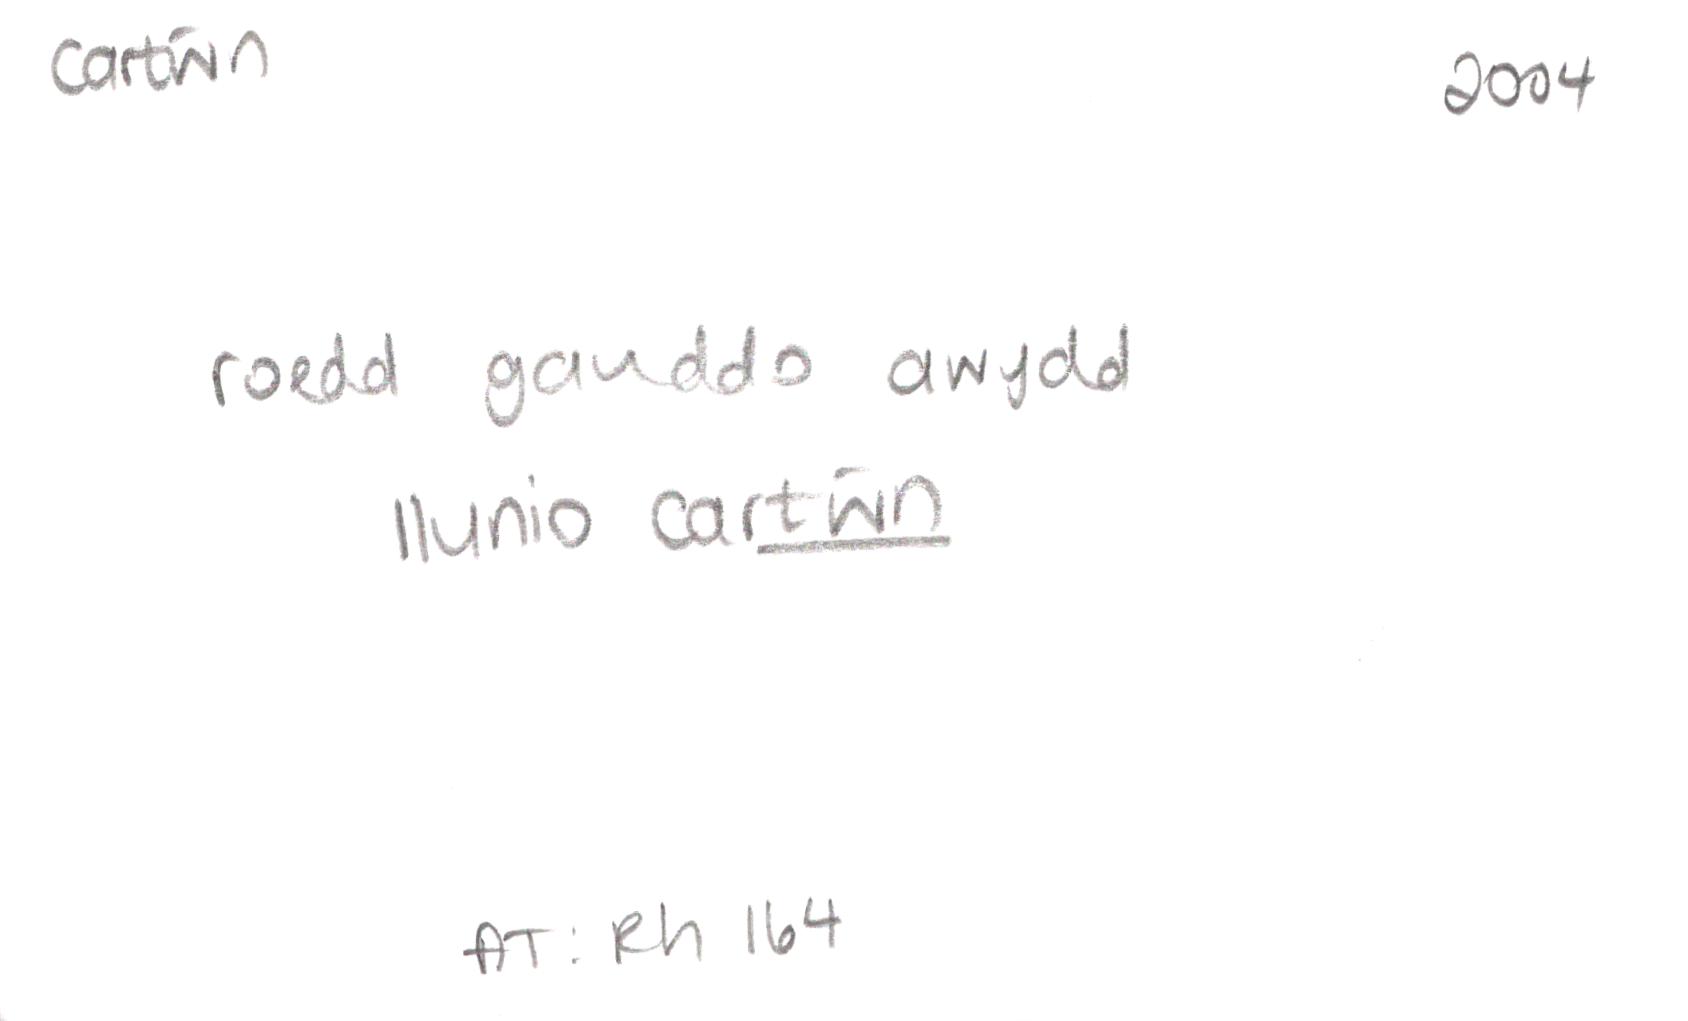 cartŵn 2004
roedd ganddo awydd
llunio cartŵn
AT: Rh 164